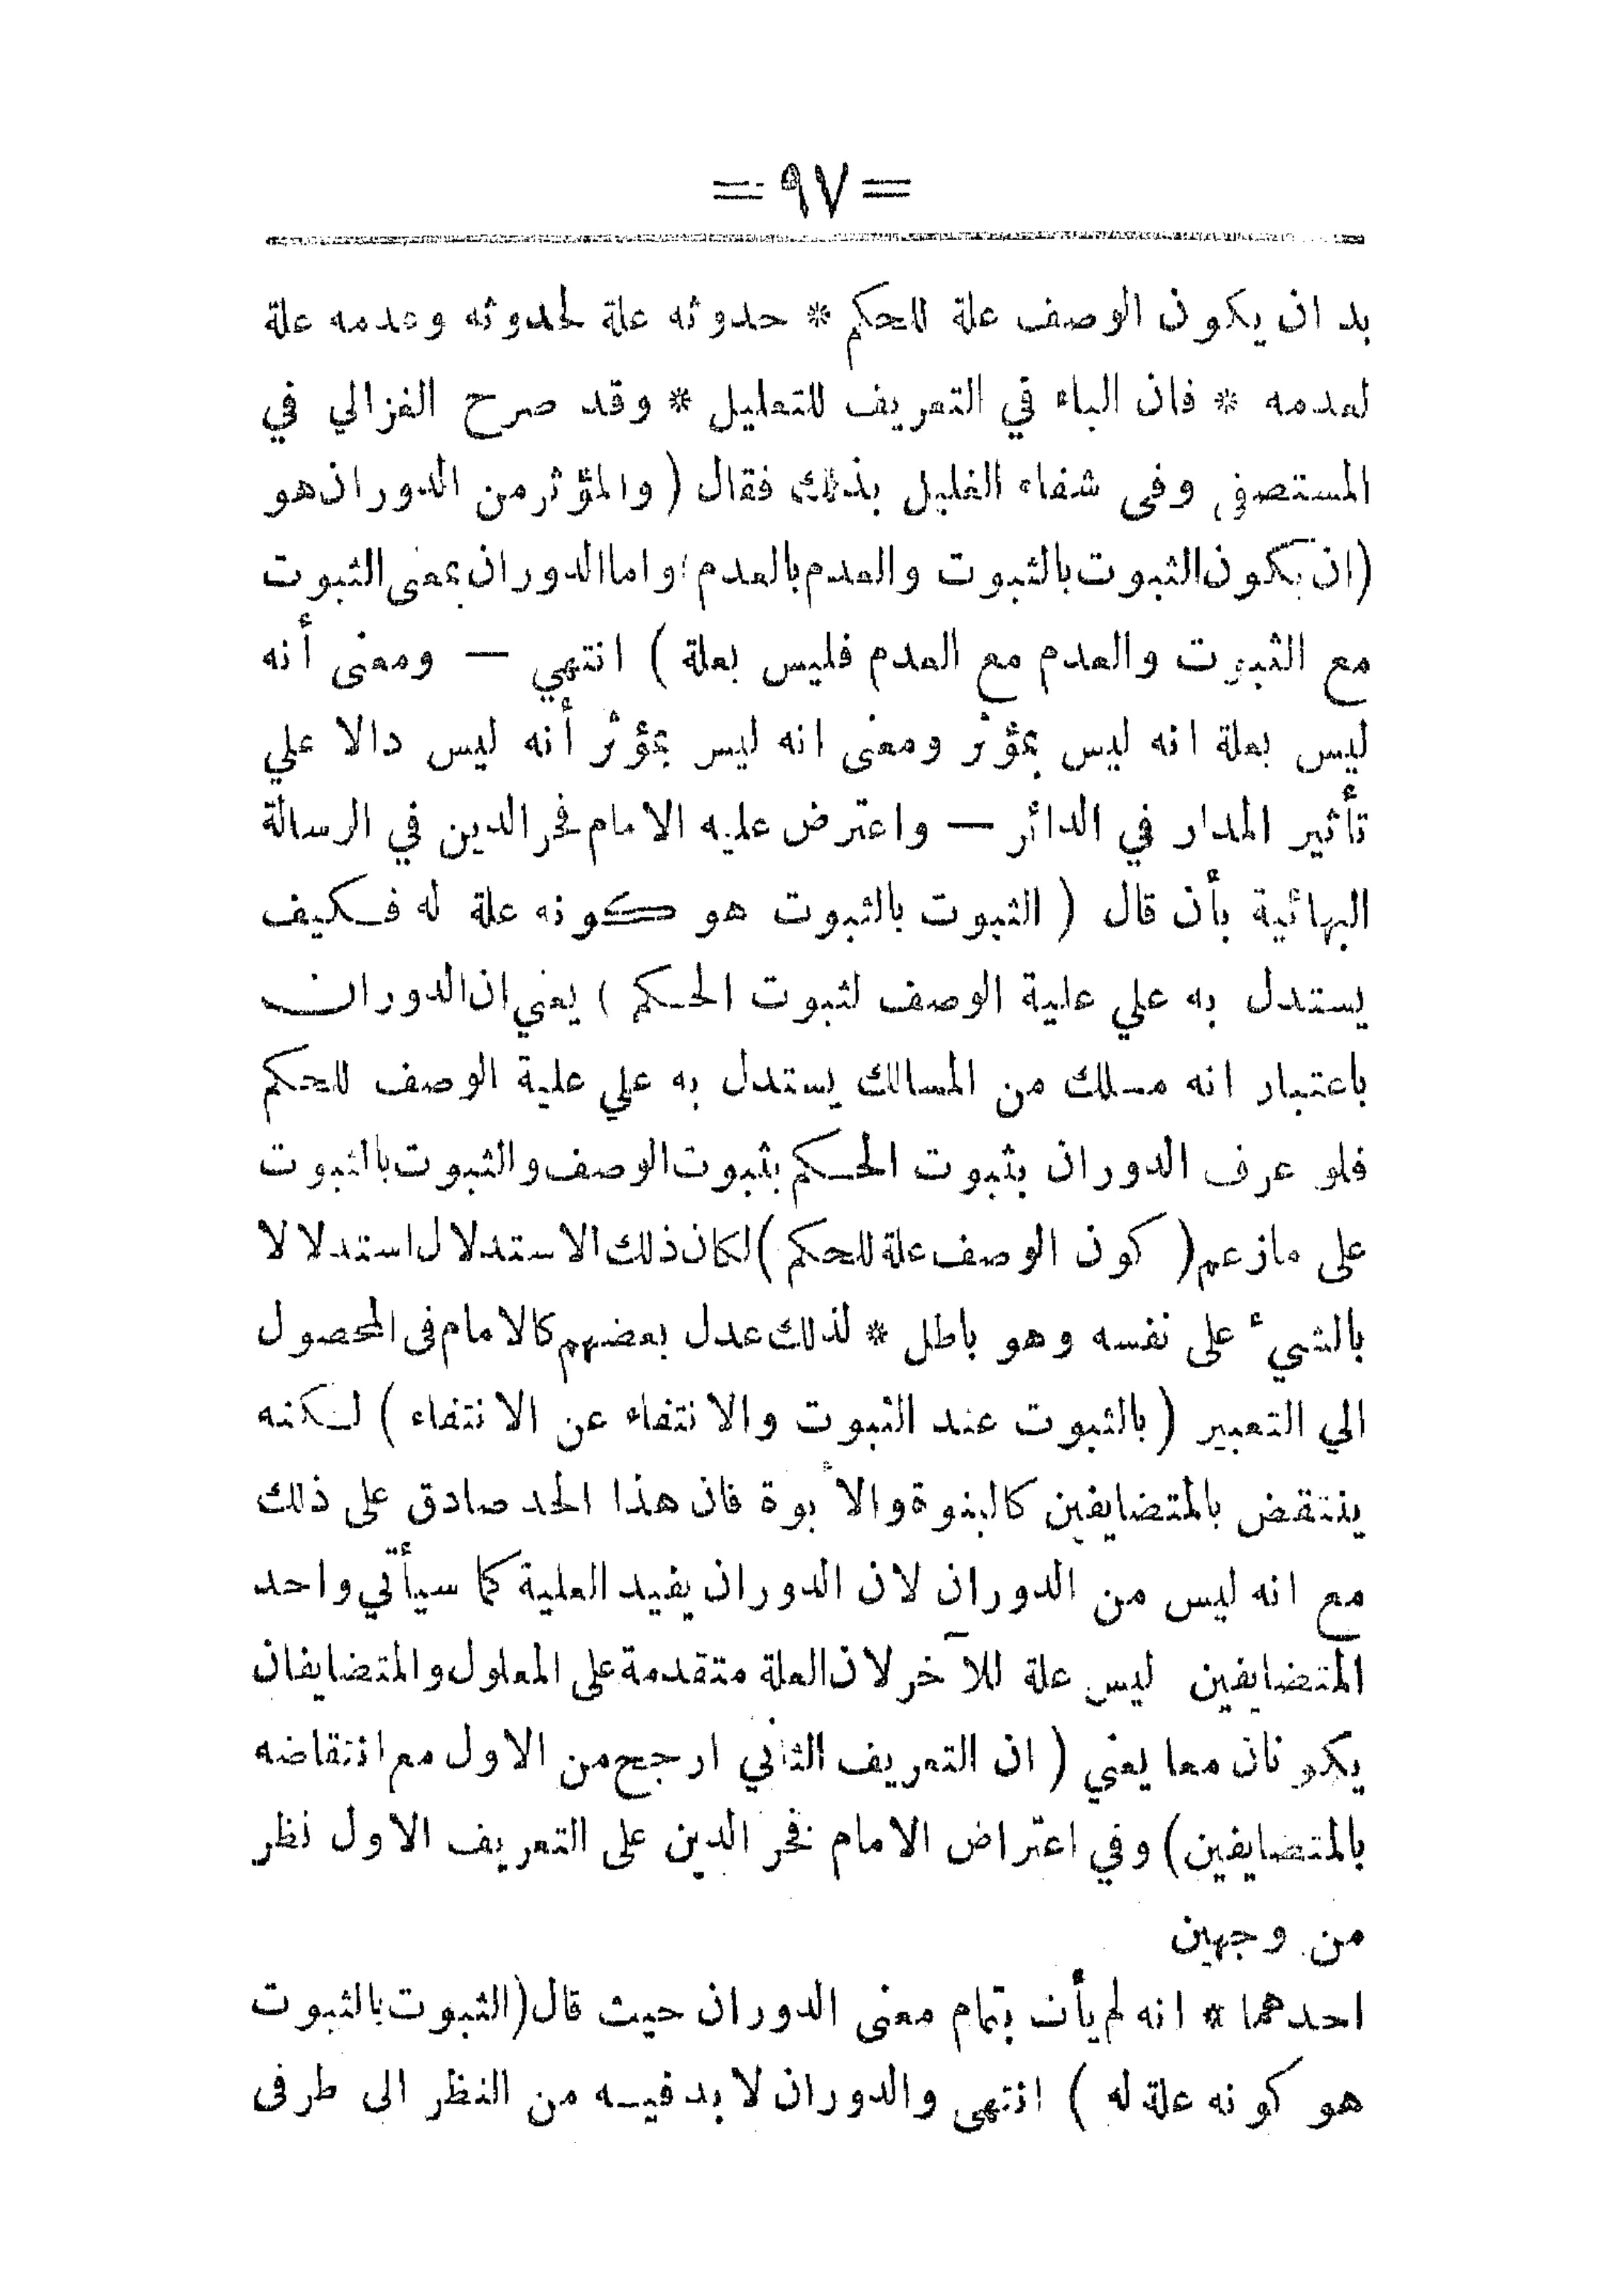 = ٩٧ =
بد ان يكون الوصف علة للحكم * حدوثه علة لحدوثه وعدمه علة
لعدمه * فان الباء في التعريف للتعليل * وقد صرح الغزالي في
المستصفي وفى شفاء الغليل بذلك فقال ( والمؤثر من الدوران هو
(ان يكون الثبوت بالثبوت والعدم بالعدم واما الدوران بمعنى الثبوت
مع الثبوت والعدم مع العدم فليس بعلة ) انتهي — ومعنى أنه
ليس بعلة انه ليس بمؤثر ومعنى انه ليس بمؤثر أنه ليس دالا علي
تأثير المدار في الدائر — واعترض عليه الامام فخر الدين في الرسالة
البهائية بأن قال ( الثبوت بالثبوت هو كونه علة له فكيف
يستدل به علي علية الوصف لثبوت الحكم ) يعني ان الدوران
باعتبار انه مسلك من المسالك يستدل به علي علية الوصف للحكم
فلو عرف الدوران بثبوت الحكم بثبوت الوصف والثبوت بالثبوت
على مازعم ( كون الوصف علة للحكم ) لكان ذلك الاستدلال استدلالا
بالشيء على نفسه وهو باطل * لذلك عدل بعضهم كالامام فى المحصول
الي التعبير ( بالثبوت عند الثبوت والانتفاء عن الانتفاء ) لكنه
ينتقض بالمتضايفين كالبنوة والأبوة فان هذا الحد صادق على ذلك
مع انه ليس من الدوران لان الدوران يفيد العلية كما سيأتي واحد
المتضايفين ليس علة للآخر لان العلة متقدمة على المعلول والمتضايفان
يكونان معا يعني ( ان التعريف الثاني ارجح من الاول مع انتقاضه
بالمتضايفين ) وفي اعتراض الامام فخر الدين على التعريف الاول نظر
من وجهين
احدهما * انه لم يأت بتمام معنى الدوران حيث قال ( الثبوت بالثبوت
هو كونه علة له ) انتهى والدوران لا بد فيه من النظر الى طرفى